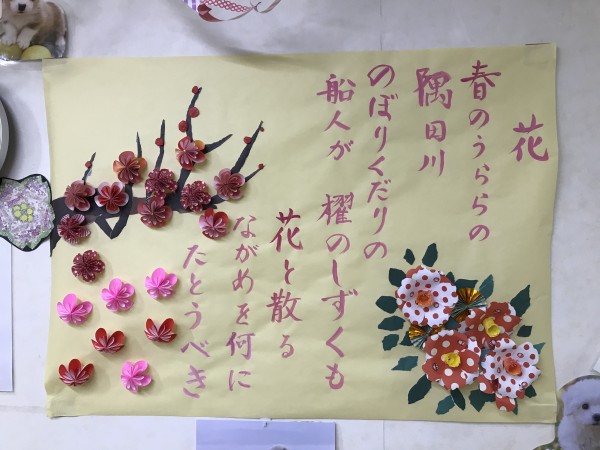 花
春のうららの
隅田川
のぼりくだりの
船人が
櫂のしずくも
花と散る
ながめを何に
たとうべき